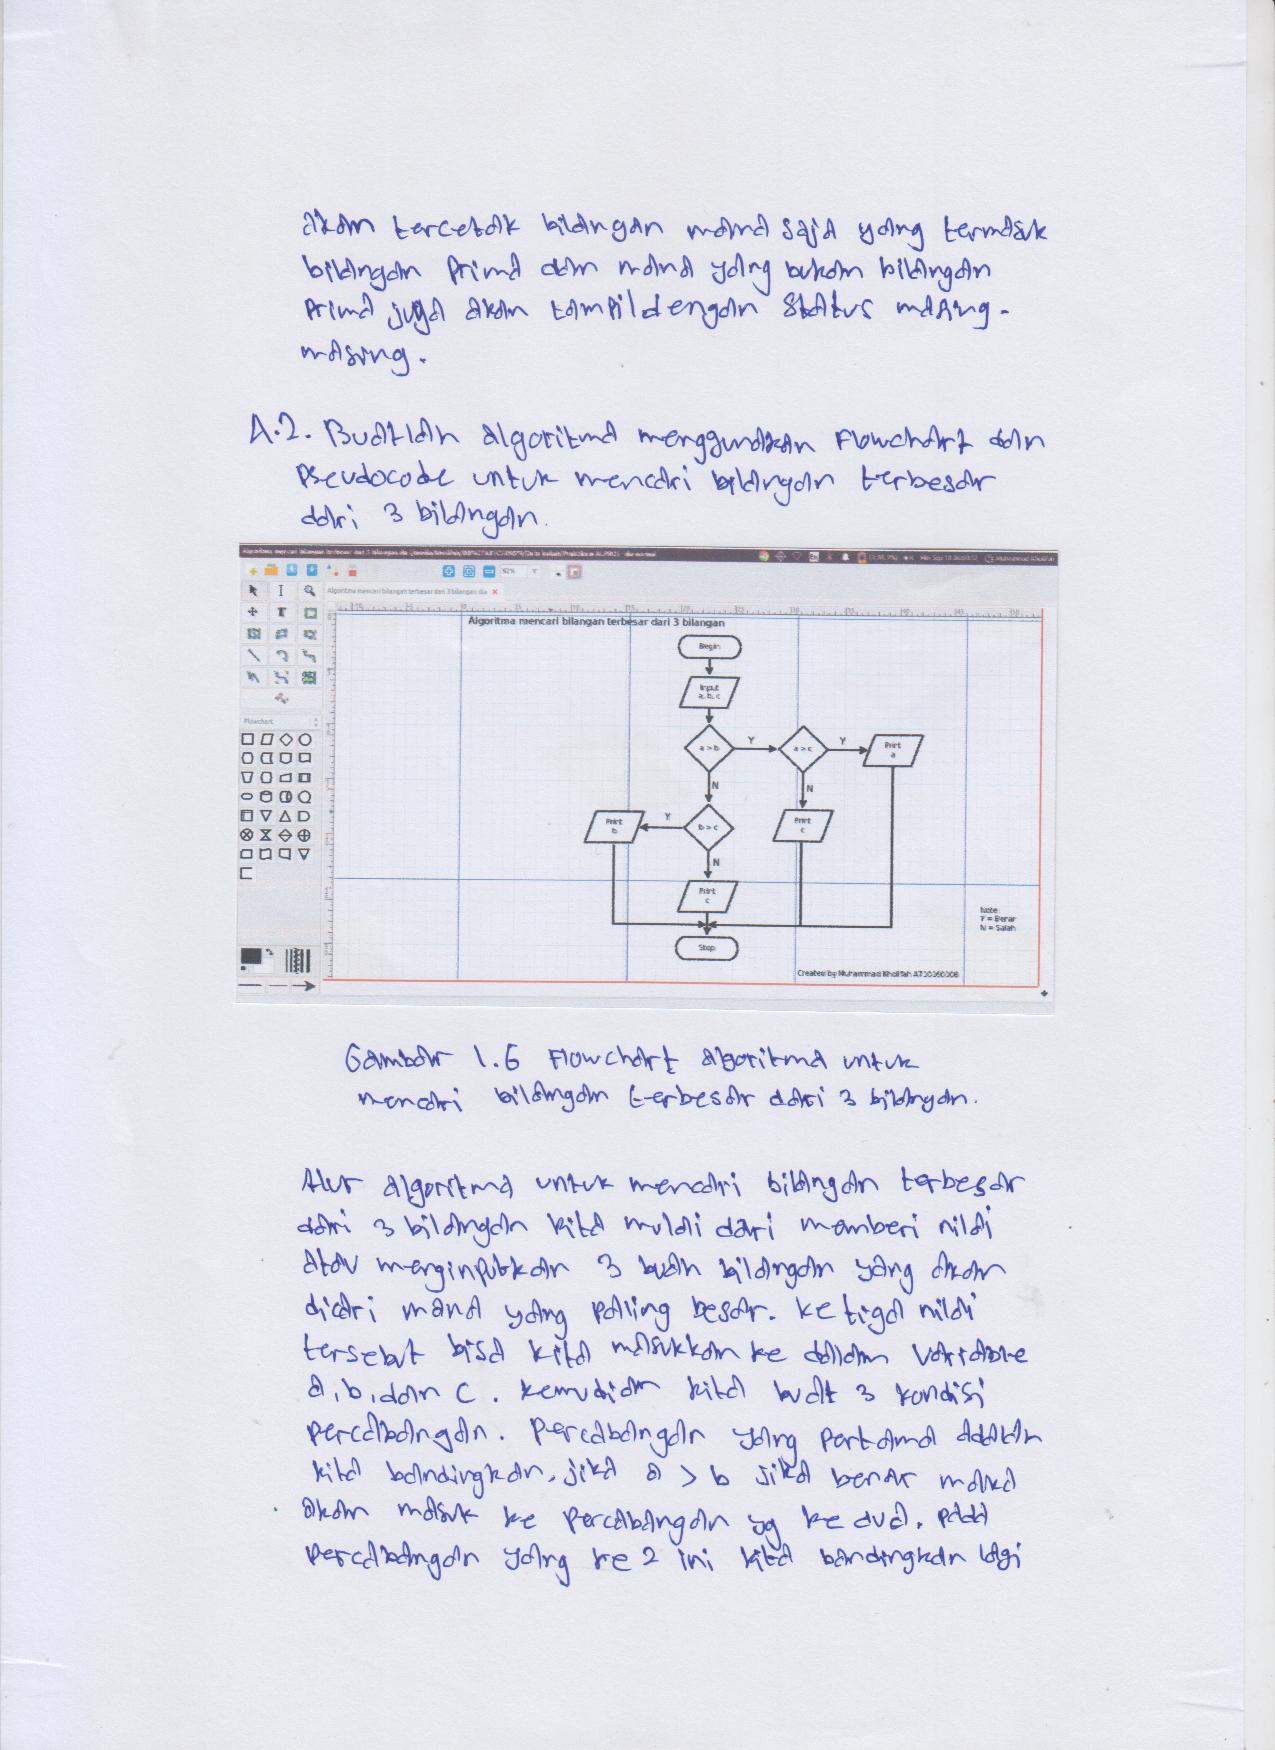 akan tercetak bilangan mana saja yang termasuk
bilangan prima dan mana yang bukan bilangan
prima juga akan tampil dengan status masing-
masing.
A.2. Buatlah algoritma menggunakan Flowchart dan
Pseudocode untuk mencari bilangan terbesar
dari 3 bilangan.
92%
Algoritma mencari bilangan terbesar dari 3 bilangan.dia
Flowchart
Algoritma mencari bilangan terbesar dari 3 bilangan
Begin
Input
a, b, c
a > b
Y
a > c
Y
Print
a
N
N
Print
b
Y
b > c
Print
c
N
Print
c
Stop
Note:
Y = Benar
N = Salah
Created by Muhammad Kholifah
Gambar 1.6 Flowchart algoritma untuk
mencari bilangan terbesar dari 3 bilangan.
Alur algoritma untuk mencari bilangan terbesar
dari 3 bilangan kita mulai dari memberi nilai
atau menginputkan 3 buah bilangan yang akan
dicari mana yang paling besar. ketiga nilai
tersebut bisa kita masukkan ke dalam Variable
a, b, dan c. kemudian kita buat 3 kondisi
percabangan. percabangan yang pertama adalah
kita bandingkan, jika a > b jika benar maka
akan masuk ke percabangan yg ke dua. pada
percabangan yang ke 2 ini kita bandingkan lagi